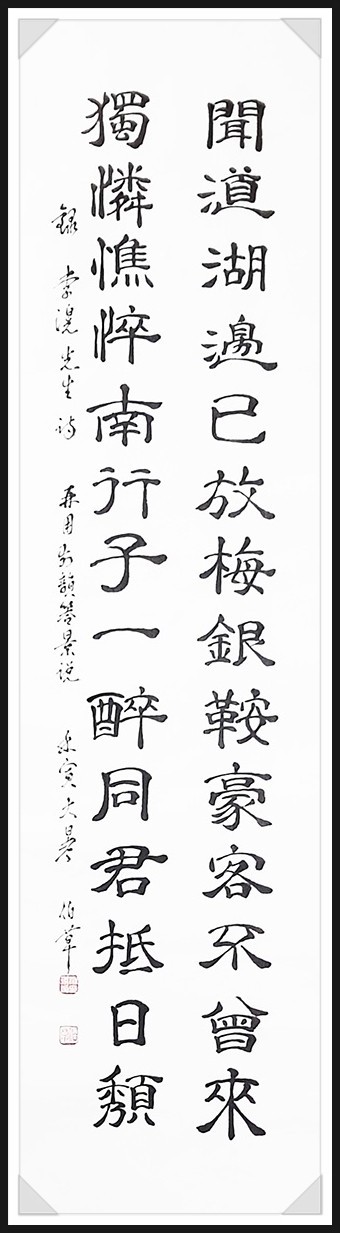 聞道湖邊已放梅銀鞍豪客不曾來
獨憐憔悴南行子一醉同君抵日頹
錄 李滉先生詩 再用前韻答景說 寅大暑 伯